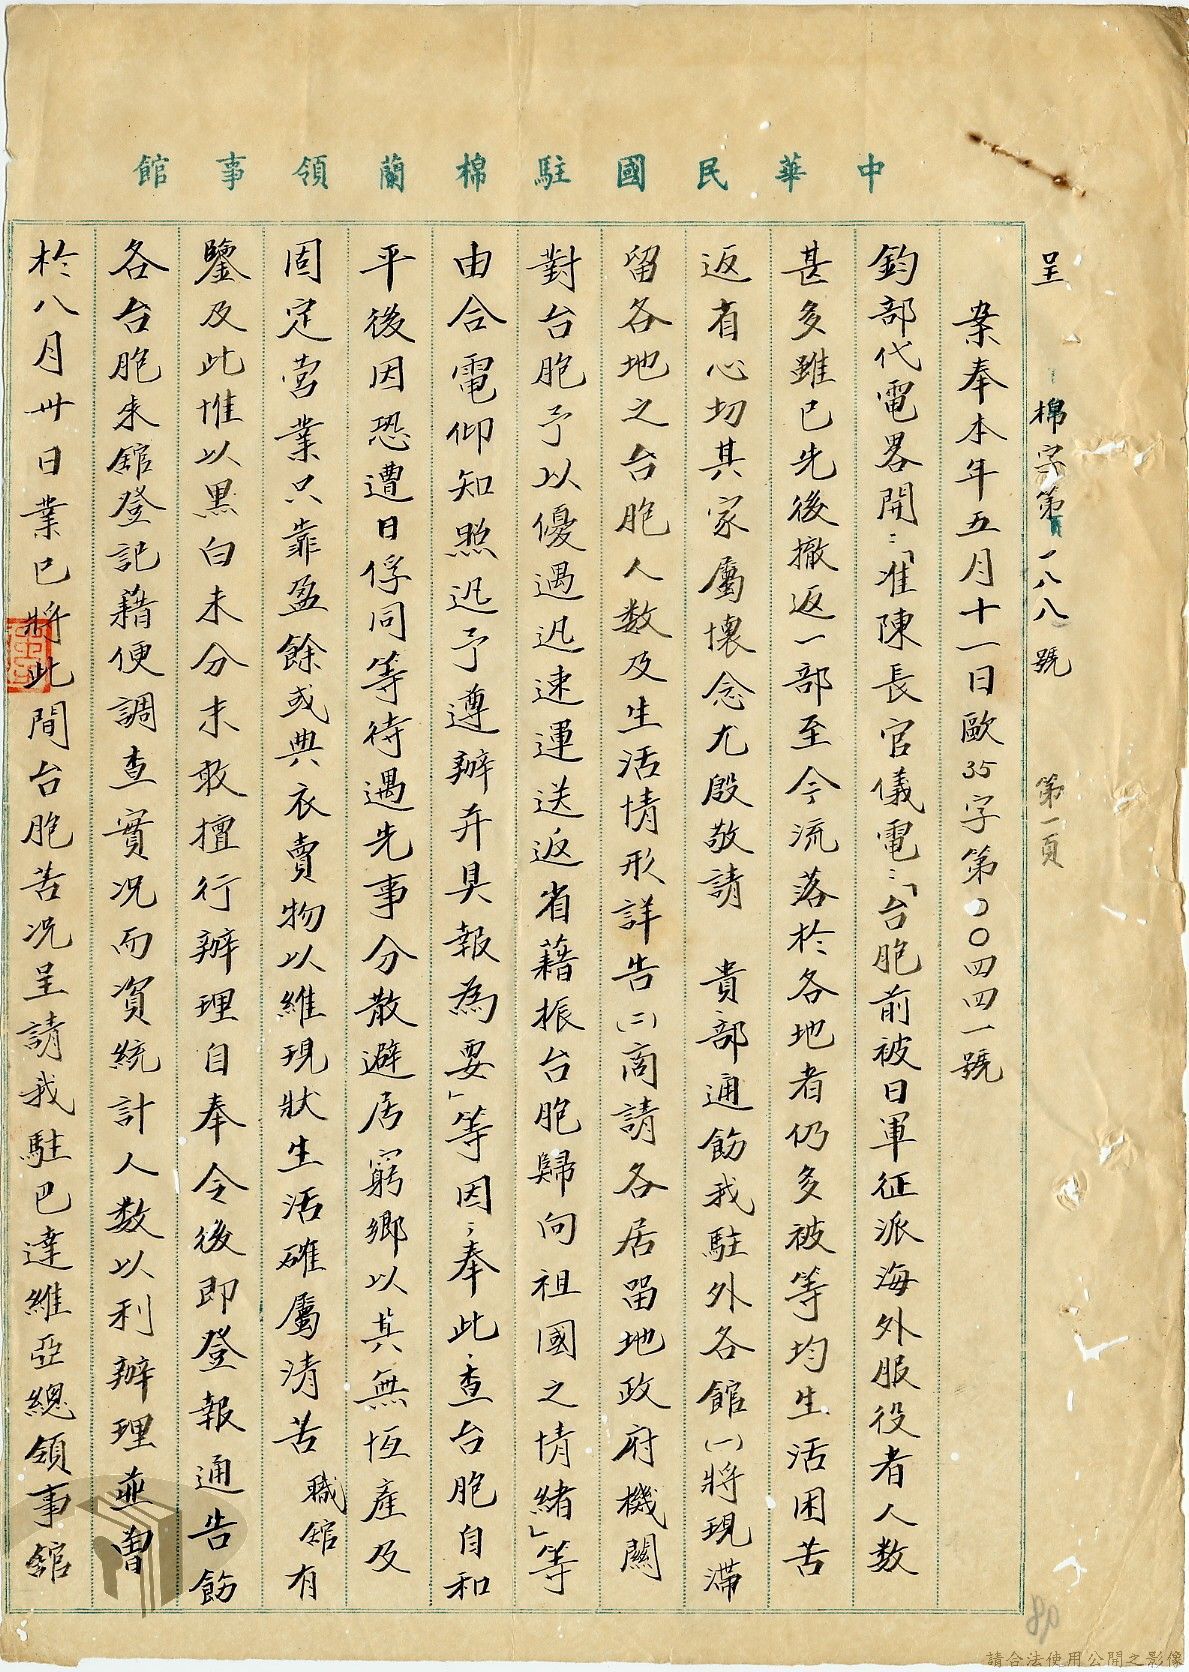 中華民國駐棉蘭領事館
呈 棉字第一八八號 第一頁
案奉本年五月十一日歐35字第〇〇四四一號
鈞部代電畧開：「准陳長官儀電：「台胞前被日軍征派海外服役者人数
甚多雖已先後撤返一部至今流落於各地者仍多被等均生活困苦
返省心切其家屬懐念尤殷敬請 貴部通飭我駐外各館㈠將現滯
留各地之台胞人数及生活情形詳告㈡商請各居留地政府機關
對台胞予以優遇迅速運送返省藉振台胞歸向祖國之情緒」等
由合電仰知照迅予遵辦弁具報為要」等因；奉此查台胞自和
平後因恐遭日俘同等待遇先事分散避居窮鄉以其無恆產及
固定營業只靠盈餘或典衣賣物以維現狀生活確屬清苦職館有
鑒及此惟以黑白未分未敢擅行辦理自奉令後即登報通告飭
各台胞來館登記藉便調查實况而資統計人数以利辦理並曽
於八月卅日業已將此間台胞苦况呈請我駐巴達維亞總領事館
80
請合法使用公開之影像